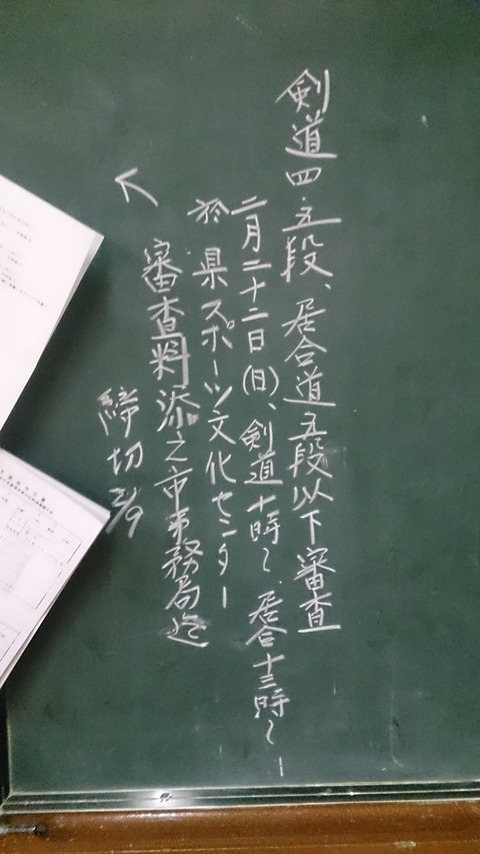 剣道四・五段、居合道五段以下審査
二月二十二日(日)、剣道十時〜 居合十三時〜
於 県スポーツ文化センター
審査料添え市事務局迄
締切 2/9